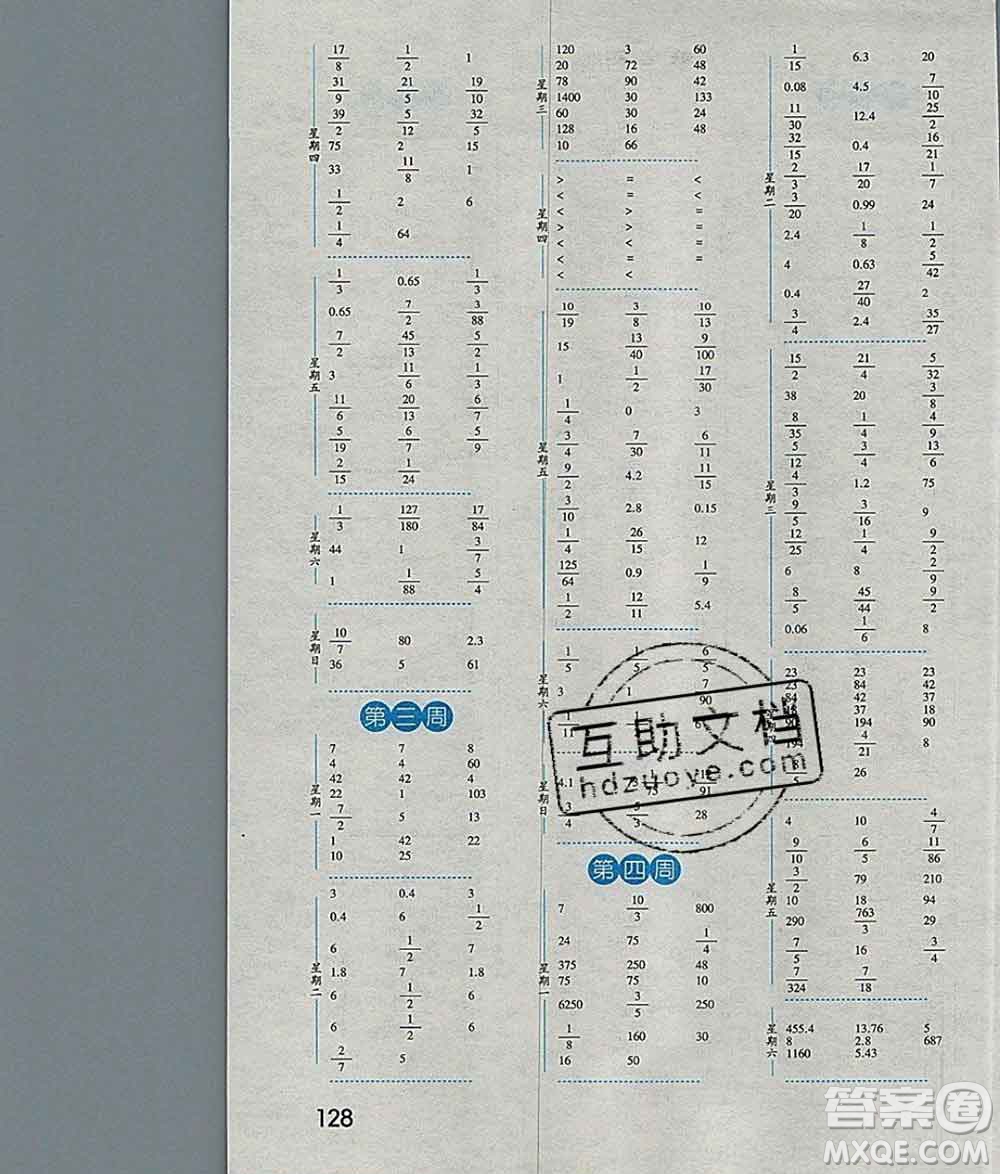 星期四
17/8 1/2 1
31/9 21/5 19/10
39/2 5/12 32/5
75 2 15
33 11/8 1
1/2 2 6
1/4 64
星期五
1/3 0.65 1/3
0.65 7/2 3/88
7/2 45/13 5/2
3 11/6 4/3
11/6 20/13 6/7
5/19 6/7 5/9
2/15 1/24
星期六
1/3 127/180 17/84
44 1 3/7
1 1/88 5/4
星期日
10/7 80 2.3
36 5 61
第三周
星期一
7 7 8
4 4 60
42 42 4
22 1 103
7/2 5 13
1 42 22
10 25
星期二
3 0.4 3
0.4 6 1/2
6 1/2 7
1.8 7 1.8
6 1/2 6
6 1/2 6
2/7 5
128
星期三
120 3 60
20 72 48
78 90 42
1400 30 133
60 30 24
128 16 48
10 66
星期四
> = <
< = =
< > =
> < =
< < =
< < =
< <
星期五
10/19 3/8 10/13
15 13/40 9/100
1 1/2 17/30
1/4 0 3
3/4 7/30 6/11
9/2 4.2 11/15
3/10 2.8 0.15
1/4 26/15 12
125/64 0.9 1/9
1/2 12/11 5.4
星期六
1/5 1/5 6/5
3 1 7/90
1/11
星期日
4.1
3/4 5/3 28
第四周
星期一
7 10/3 800
24 75 1/4
375 250 48
75 75 10
6250 3/5 250
1/8 160 30
16 50
星期二
1/15 6.3 20
0.08 4.5 7/10
11/30 12.4 25/2
32/15 0.4 16/21
2/3 17/20 1/7
3/20 0.99 24
2.4 1/8 1/2
4 0.63 5/42
0.4 27/40 2
3/4 2.4 35/27
星期三
15/2 21/4 5/32
38 20 3/8
8/35 1/4 4/9
5/12 4/3 13/6
4/3 1.2 75
9/5 3/16 9
12/25 1/4 2/9
6 8 2/9
8/5 45/44 9/2
0.06 1/6 8
23 23 23
23 84 42
84 42 37
37 18
194 90
4/21 8
26
星期五
4 10 4/7
9/10 6/5 11/86
3/2 79 210
10 18 94
290 763/3 29
7/5 16 3/4
7/324 7/18
星期六
455.4 13.76 5
8 2.8 687
1160 5.43
互助文档
hdzuoye.com
答案圈
MXQE.COM